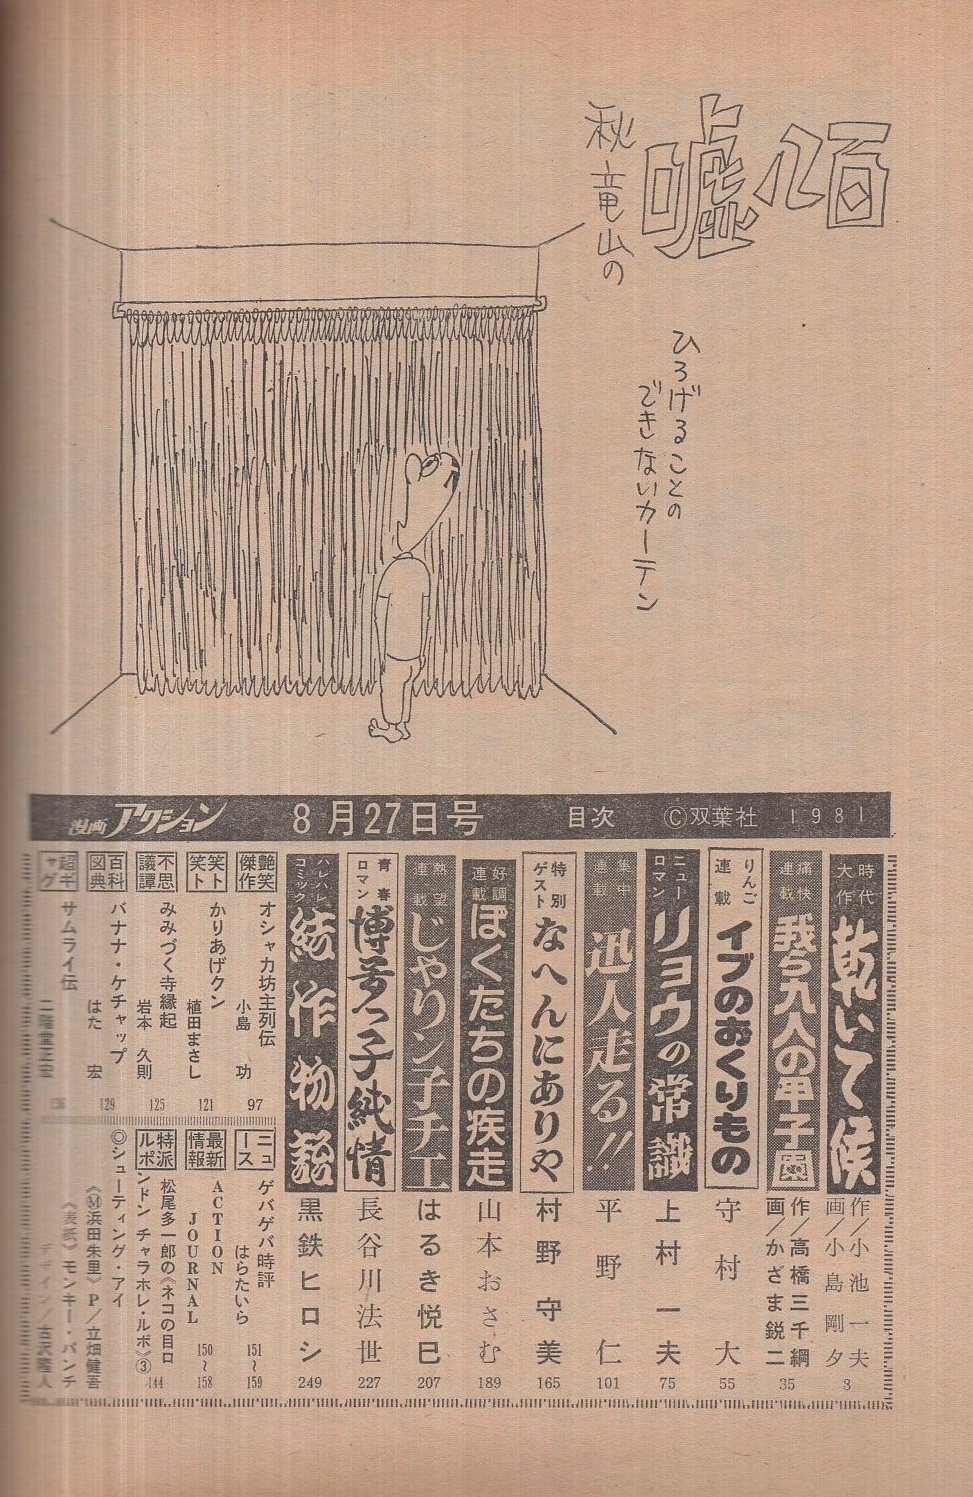 嘘八百
秋竜山の
ひろげることの
できないカーテン
漫画アクション 8月27日号 目次 Ⓒ双葉社 1981
時代大作 乾いて候 作/小池一夫 画/小島剛夕 3
痛快連載 我ら九人の甲子園 作/高橋三千綱 画/かざま鋭二 35
りんご連載 イブのおくりもの 守村大 55
ニューロマン リョウの常識 上村一夫 75
集中連載 迅人走る!! 平野仁 101
特別ゲスト なへんにありや 村野守美 165
好調連載 ぼくたちの疾走 山本おさむ 189
熱望連載 じゃりン子チエ はるき悦巳 207
青春ロマン 博多っ子純情 長谷川法世 227
ハレハレコミック 結作物語 黒鉄ヒロシ 249
艶笑傑作 オシャカ坊主列伝 小島功 97
笑ト笑ト かりあげクン 植田まさし 121
不思議譚 みみづく寺縁起 岩本久則 125
百科図典 バナナ・ケチャップ はた宏 129
超ギャグ サムライ伝 二階堂正宏 136
ニュース ゲバゲバ時評 はらたいら 151〜159
最新情報 ACTION JOURNAL 150〜158
特派ルポ 松尾多一郎の《ネコの目ロンドン チャラホレ・ルポ》③ 144
◎シューティング・アイ
《Ⓜ浜田朱里》 P/立畑健吾
《表紙》モンキー・パンチ
デザイン/古沢隆人